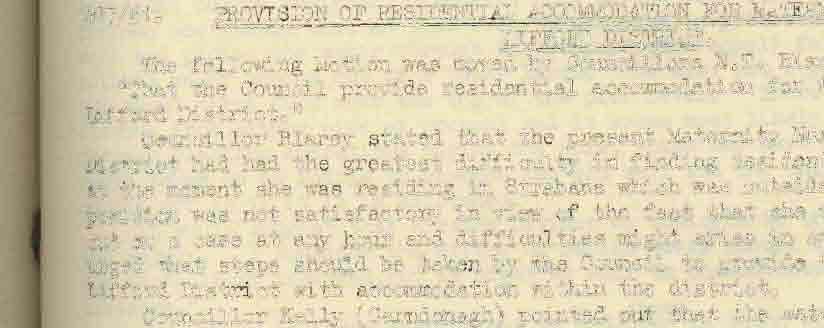 PROVISION OF RESIDENTIAL ACCOMMODATION FOR
LIFFORD DISTRICT.
The following Motion was moved by Councillors N.T.
"That the Council provide residential accommodation for
Lifford District."
Councillor Blaney stated that the present Maternity
District had had the greatest difficulty in finding
at the moment she was residing in Strabane which was outside
position was not satisfactory in view of the fact that she
out on a case at any hour and difficulties might arise in
urged that steps should be taken by the Council to provide
Lifford District with accommodation within the district.
Councillor Kelly (Carndonagh) pointed out that the